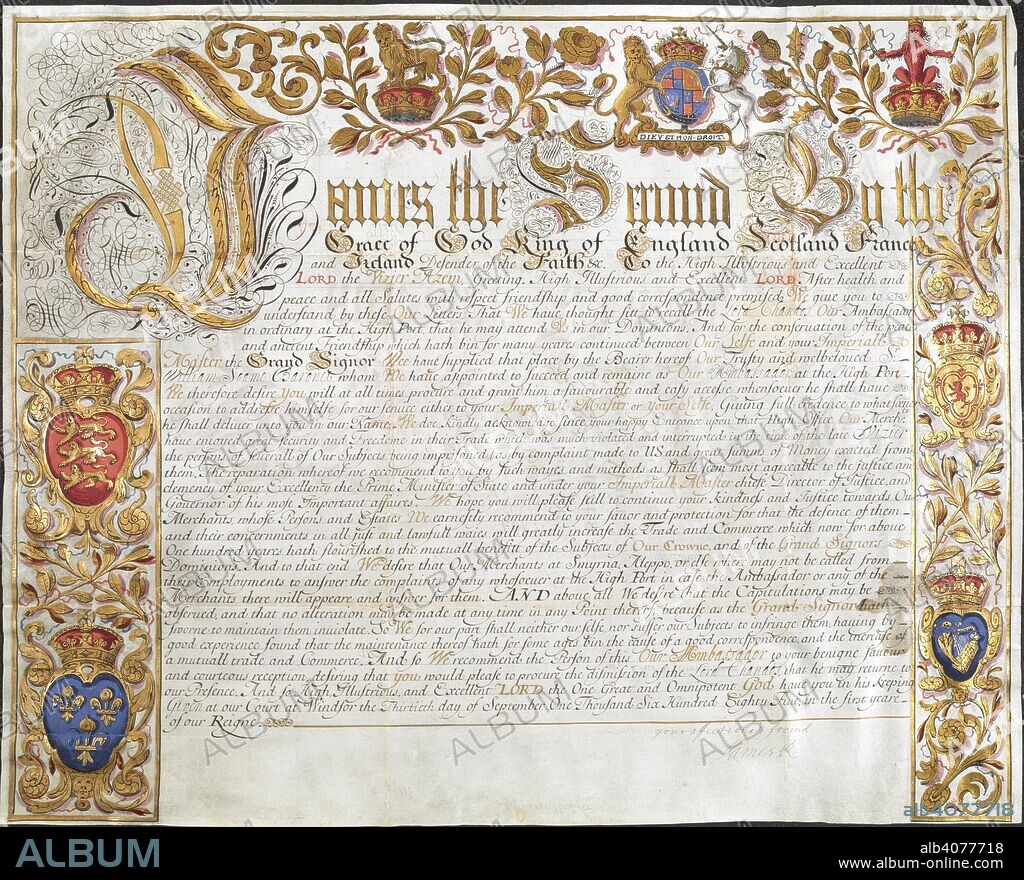 DIEV ET MON DROIT
James the Second By the
Grace of God King of England Scotland France
and Ireland Defender of the Faith &c. To the High Illustrious and Excellent
LORD the Vizir Azem Greeting. High Illustrious and Excellent LORD. After health and
peace and all Salutes with respect friendship and good correspondence premised, We give you to
understand by these our Letters That We have thought fitt to recall the Lord Chandos Our Ambassador
in ordinary at the High Port that he may attend Us in our Dominions. And for the conservation of the peace
and ancient Friendship which hath bin for many yeares continued between Our Selfe and your Imperiall
Master the Grand Signor We have supplied that place by the Bearer hereof Our Trusty and welbeloved Sr.
William Soame Baronet whom We have appointed to succeed and remaine as Our Ambassador at the High Port
We therefore desire You will at all times procure and grant him a favourable and easy accesse whensoever he shall have
occasion to address himselfe for our service either to your Imperiall Master or your Selfe, Giving full credence to whatsoever
he shall deliver to you in our Name. We doe kindly acknowledge since your happy Entrance upon that High Office Our Merchts
have enjoyed that Security and Freedome in their Trade which was much violated and interrupted in the time of the late Vizir,
the persons of severall of Our Subjects being imprisoned (as by complaint made to US) and great summs of Money exacted from
them, the reparation whereof we recommend to you by such wayes and methods as shall seem most agreeable to the justice and
clemency of your Excellency the Prime Minister of State and under your Imperiall Master chiefe Director of Justice, and
Governor of his most Important affaires. We hope you will please still to continue your Kindness and Justice towards Our
Merchants, whose Persons and Estates We earnestly recommend to your favor and protection for that the defence of them
and their concernments in all just and lawfull waies will greatly increase the Trade and Commerce which now for above
One hundred yeares hath flourished to the mutuall benefit of the Subjects of Our Crowne, and of the Grand Signors
Domenions. And to that end We desire that Our Merchants at Smyrna, Aleppo, or else where may not be called from
their employments to answer the complaints of any whosoever at the High Port in case the Ambassador or any of the
Merchants there will appeare and answer for them. AND above all We desire that the Capitulations may be
observed, and no alteration had or made at any time in any Point thereof because as the Grand Signor hath
sworne to maintain them inviolate, So We for our part shall neither our selfe nor suffer our Subjects to infringe them having by
good experience found that the maintenance thereof hath for some ages bin the cause of a good correspondence, and the encrease of
a mutuall trade and Commerce. And so We recommend the Person of this Our Ambassador to your benigne favour
and courteous reception, desiring that you would please to procure the dismission of the Lord Chandos, that he may returne to
our Presence. And so High Illustrious, and Excellent LORD the One Great and Omnipotent God, have you in his keeping
Given at our Court at Windsor the Thirtieth day of September One Thousand Six Hundred Eighty Five in the first yeare
of our Reigne
your affectionate friend
James R
ALBUM
alb4077718
alb4077718
www.album-online.com